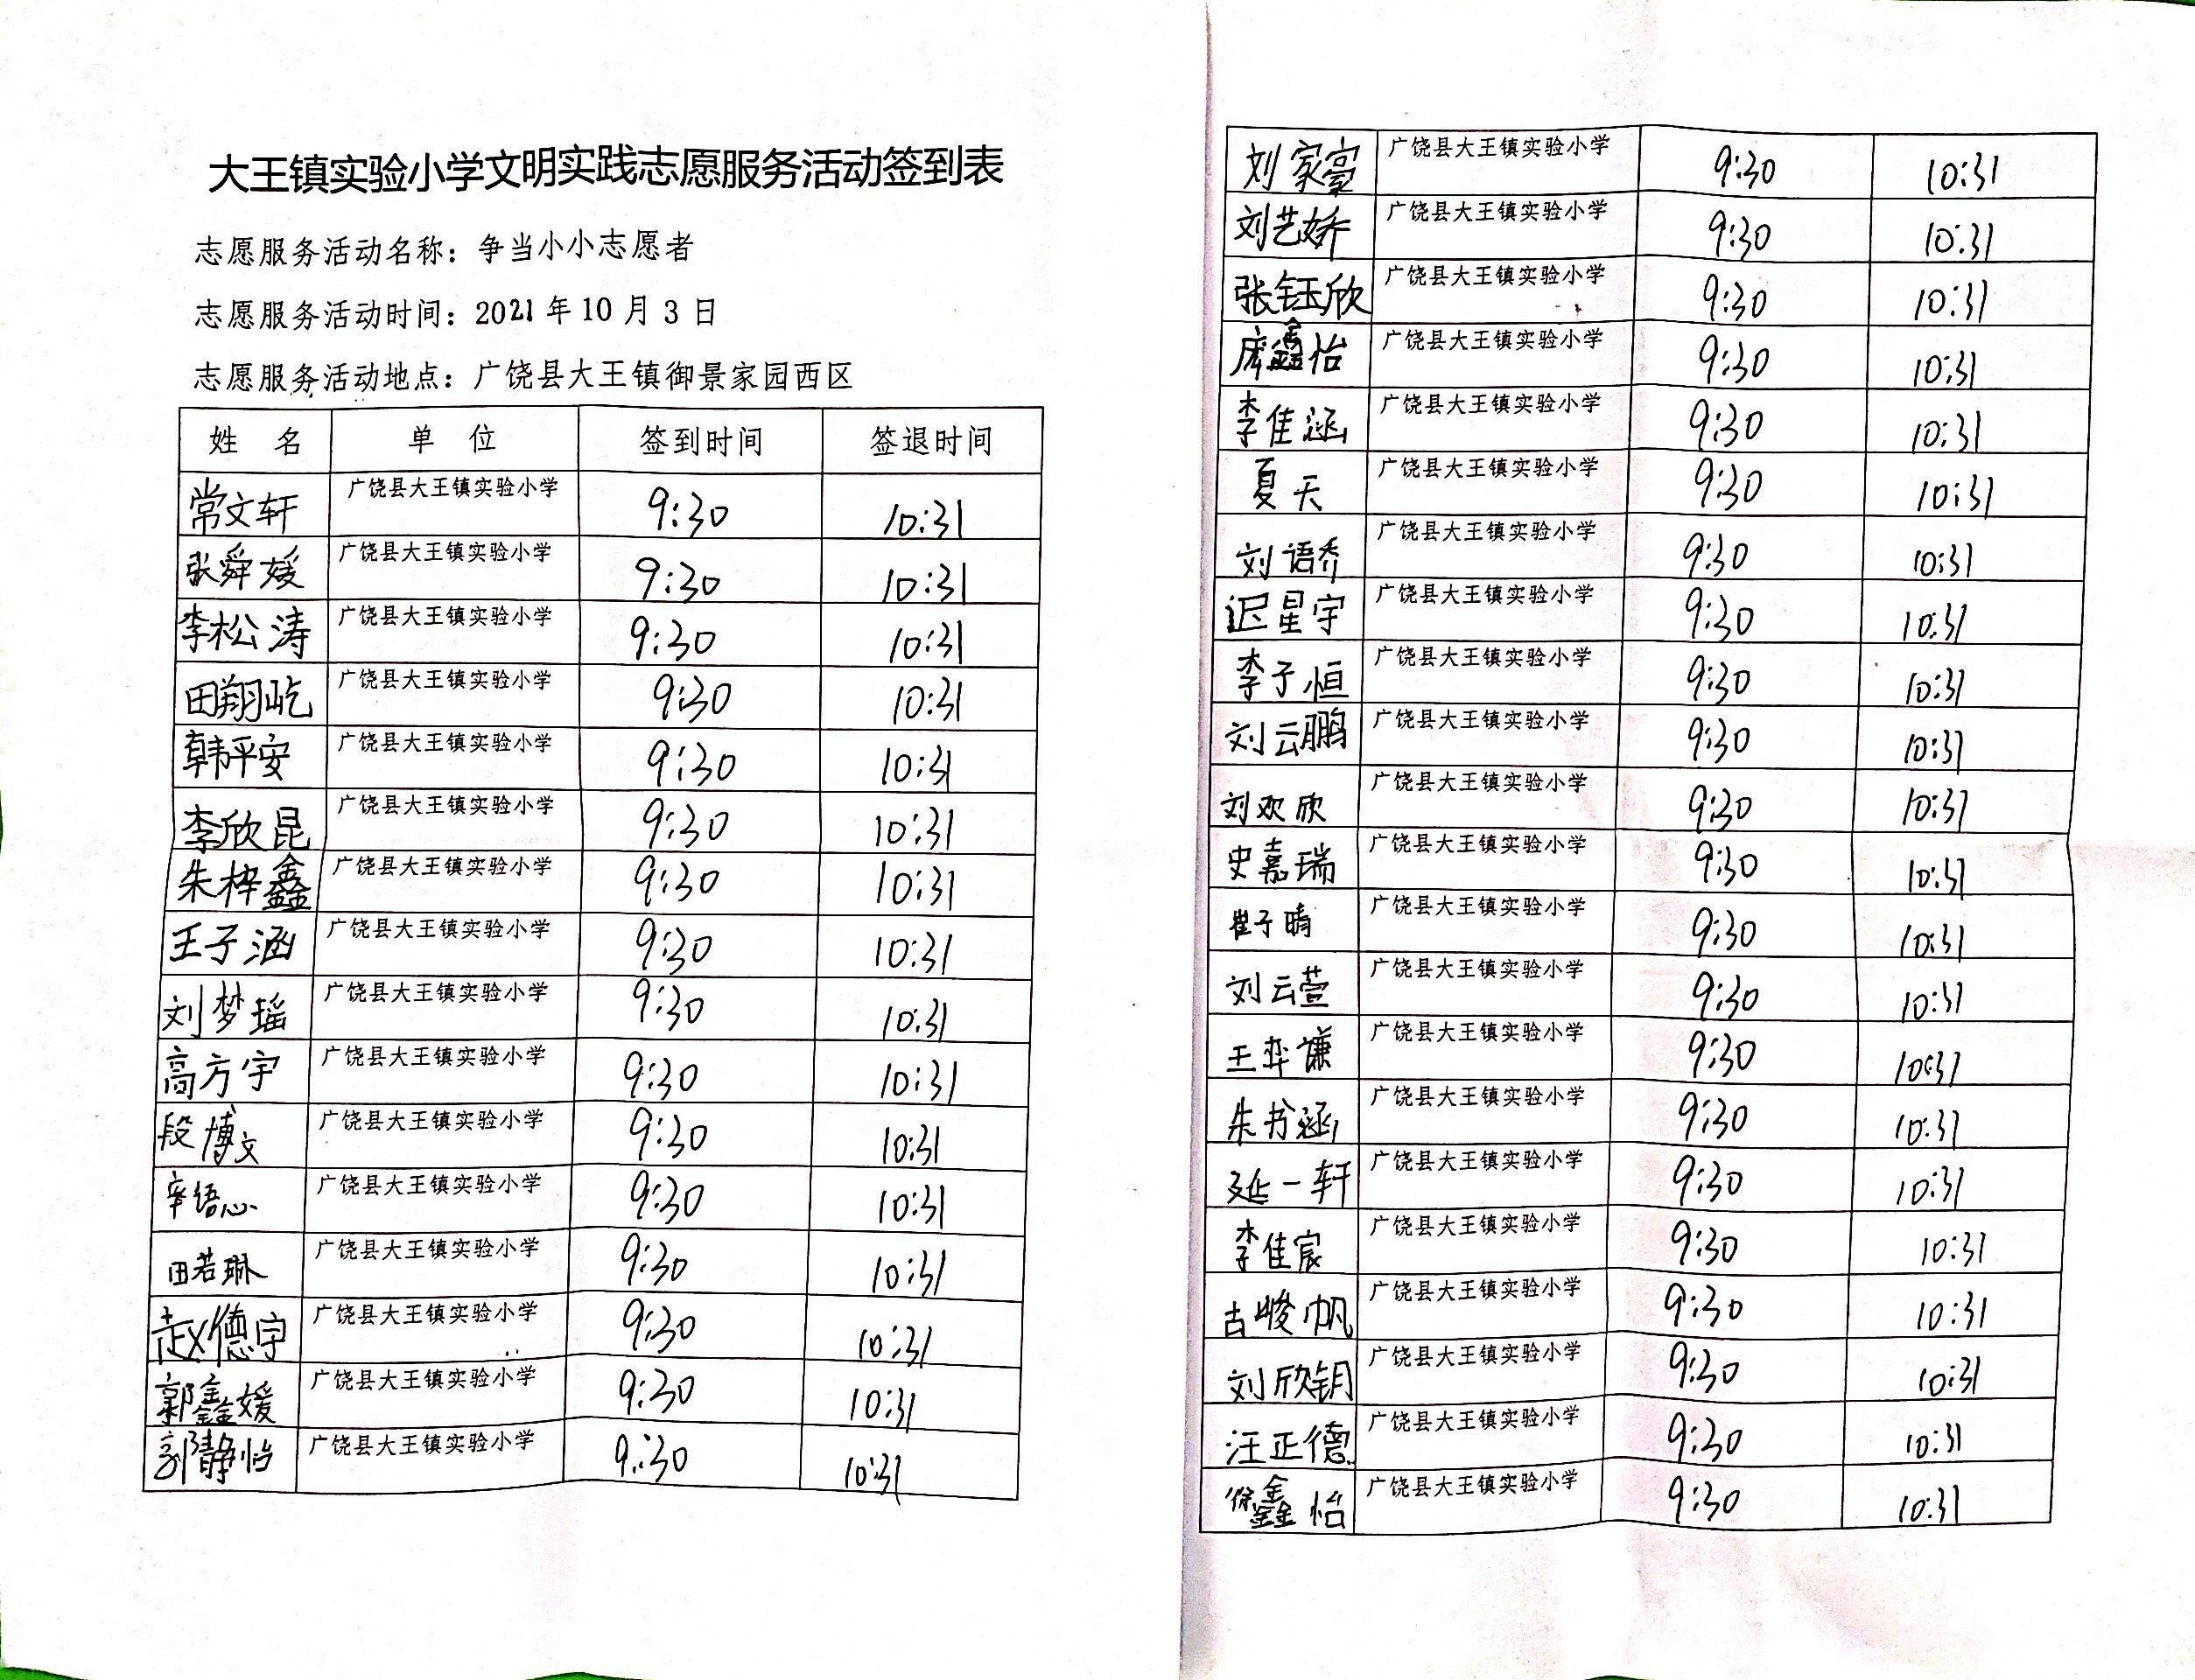 大王镇实验小学文明实践志愿服务活动签到表
志愿服务活动名称：争当小小志愿者
志愿服务活动时间：2021年10月3日
志愿服务活动地点：广饶县大王镇御景家园西区
姓 名 单 位 签到时间 签退时间
常文轩 广饶县大王镇实验小学 9:30 10:31
张舜媛 广饶县大王镇实验小学 9:30 10:31
李松涛 广饶县大王镇实验小学 9:30 10:31
田翔屹 广饶县大王镇实验小学 9:30 10:31
韩平安 广饶县大王镇实验小学 9:30 10:31
李欣昆 广饶县大王镇实验小学 9:30 10:31
朱梓鑫 广饶县大王镇实验小学 9:30 10:31
王子涵 广饶县大王镇实验小学 9:30 10:31
刘梦瑶 广饶县大王镇实验小学 9:30 10:31
高方宇 广饶县大王镇实验小学 9:30 10:31
段博文 广饶县大王镇实验小学 9:30 10:31
语心 广饶县大王镇实验小学 9:30 10:31
田若琳 广饶县大王镇实验小学 9:30 10:31
赵德宇 广饶县大王镇实验小学 9:30 10:31
郭鑫媛 广饶县大王镇实验小学 9:30 10:31
静怡 广饶县大王镇实验小学 9:30 10:31
刘家豪 广饶县大王镇实验小学 9:30 10:31
刘艺娇 广饶县大王镇实验小学 9:30 10:31
张钰欣 广饶县大王镇实验小学 9:30 10:31
鑫怡 广饶县大王镇实验小学 9:30 10:31
李佳涵 广饶县大王镇实验小学 9:30 10:31
夏天 广饶县大王镇实验小学 9:30 10:31
刘语乔 广饶县大王镇实验小学 9:30 10:31
迟星宇 广饶县大王镇实验小学 9:30 10:31
李子恒 广饶县大王镇实验小学 9:30 10:31
刘云鹏 广饶县大王镇实验小学 9:30 10:31
刘欢欣 广饶县大王镇实验小学 9:30 10:31
史嘉瑞 广饶县大王镇实验小学 9:30 10:31
崔子晴 广饶县大王镇实验小学 9:30 10:31
刘云萱 广饶县大王镇实验小学 9:30 10:31
王弈谦 广饶县大王镇实验小学 9:30 10:31
朱书涵 广饶县大王镇实验小学 9:30 10:31
延一轩 广饶县大王镇实验小学 9:30 10:31
李佳宸 广饶县大王镇实验小学 9:30 10:31
古峻帆 广饶县大王镇实验小学 9:30 10:31
刘欣钥 广饶县大王镇实验小学 9:30 10:31
汪正德 广饶县大王镇实验小学 9:30 10:31
徐鑫怡 广饶县大王镇实验小学 9:30 10:31